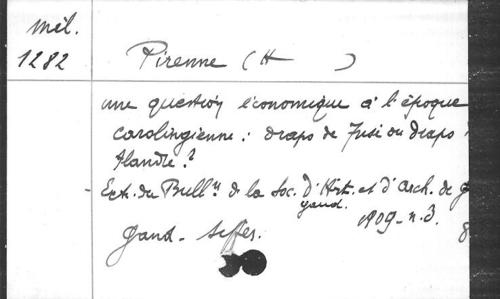 mél.
1282
Pirenne (H )
une question économique à l'époque
carolingienne : draps de Frise ou draps
Flandre ?
Extr. du Bull.n de la Soc. d'Hist. et d'Arch. de
gand.
1909 - n. 3.
gand - Siffer.